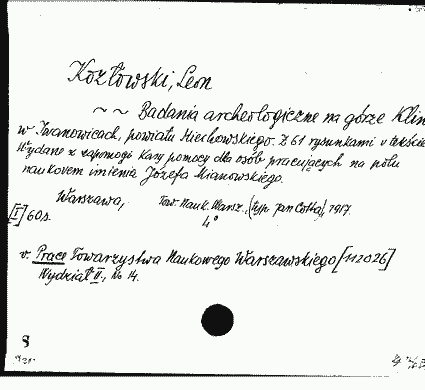 Kozłowski, Leon
~ ~ Badania archeologiczne na górze Klin
w Iwanowicach, powiatu Miechowskiego. Z 61 rysunkami w tekście
Wydane z zapomogi Kasy pomocy dla osób pracujących na polu
naukowem imienia Józefa Mianowskiego.
Warszawa, Tow. Nauk. Warsz., (typ. Jan Cotta), 1917.
[I] 60 s. 4°
v. Prace Towarzystwa Naukowego Warszawskiego [112026]
Wydział II., No 14.
8